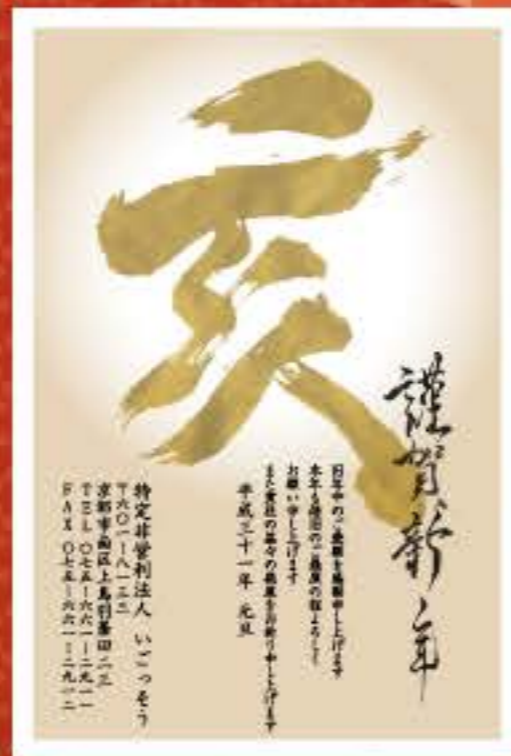 亥
謹賀新年
旧年中のご愛顧を感謝申し上げます
本年も倍旧のご愛顧の程よろしく
お願い申し上げます
また貴社の益々の発展をお祈り申し上げます
平成三十一年 元旦
特定非営利法人 いごっそう
〒六〇一-八一三三
京都市南区上鳥羽藁田二三
TEL 〇七五-六六一-二九一一
FAX 〇七五-六六一-二九一二